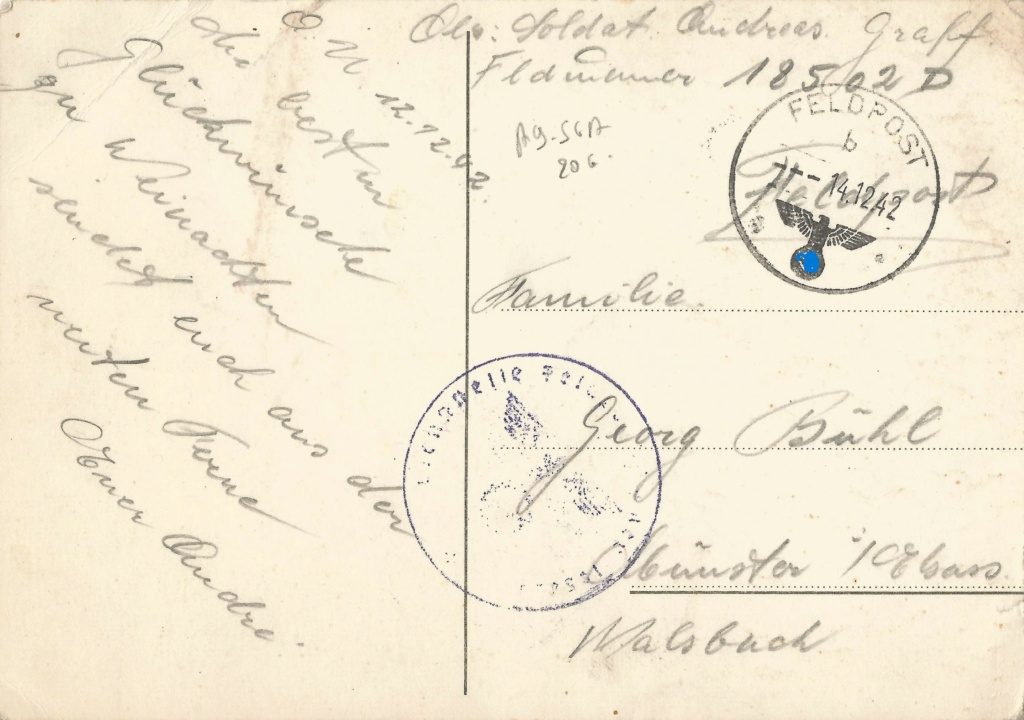 O. U. 12.12.42
die besten
Glückwünsche
zu Weinachten
sendet euch aus der
weiten Ferne
Euer Andre.
Soldat Andreas Graff
18502 D
20 6.
FELDPOST
b
14.12.42
Feldpost
Familie.
Georg Bühl
Münster i/Elsass
Walsbach